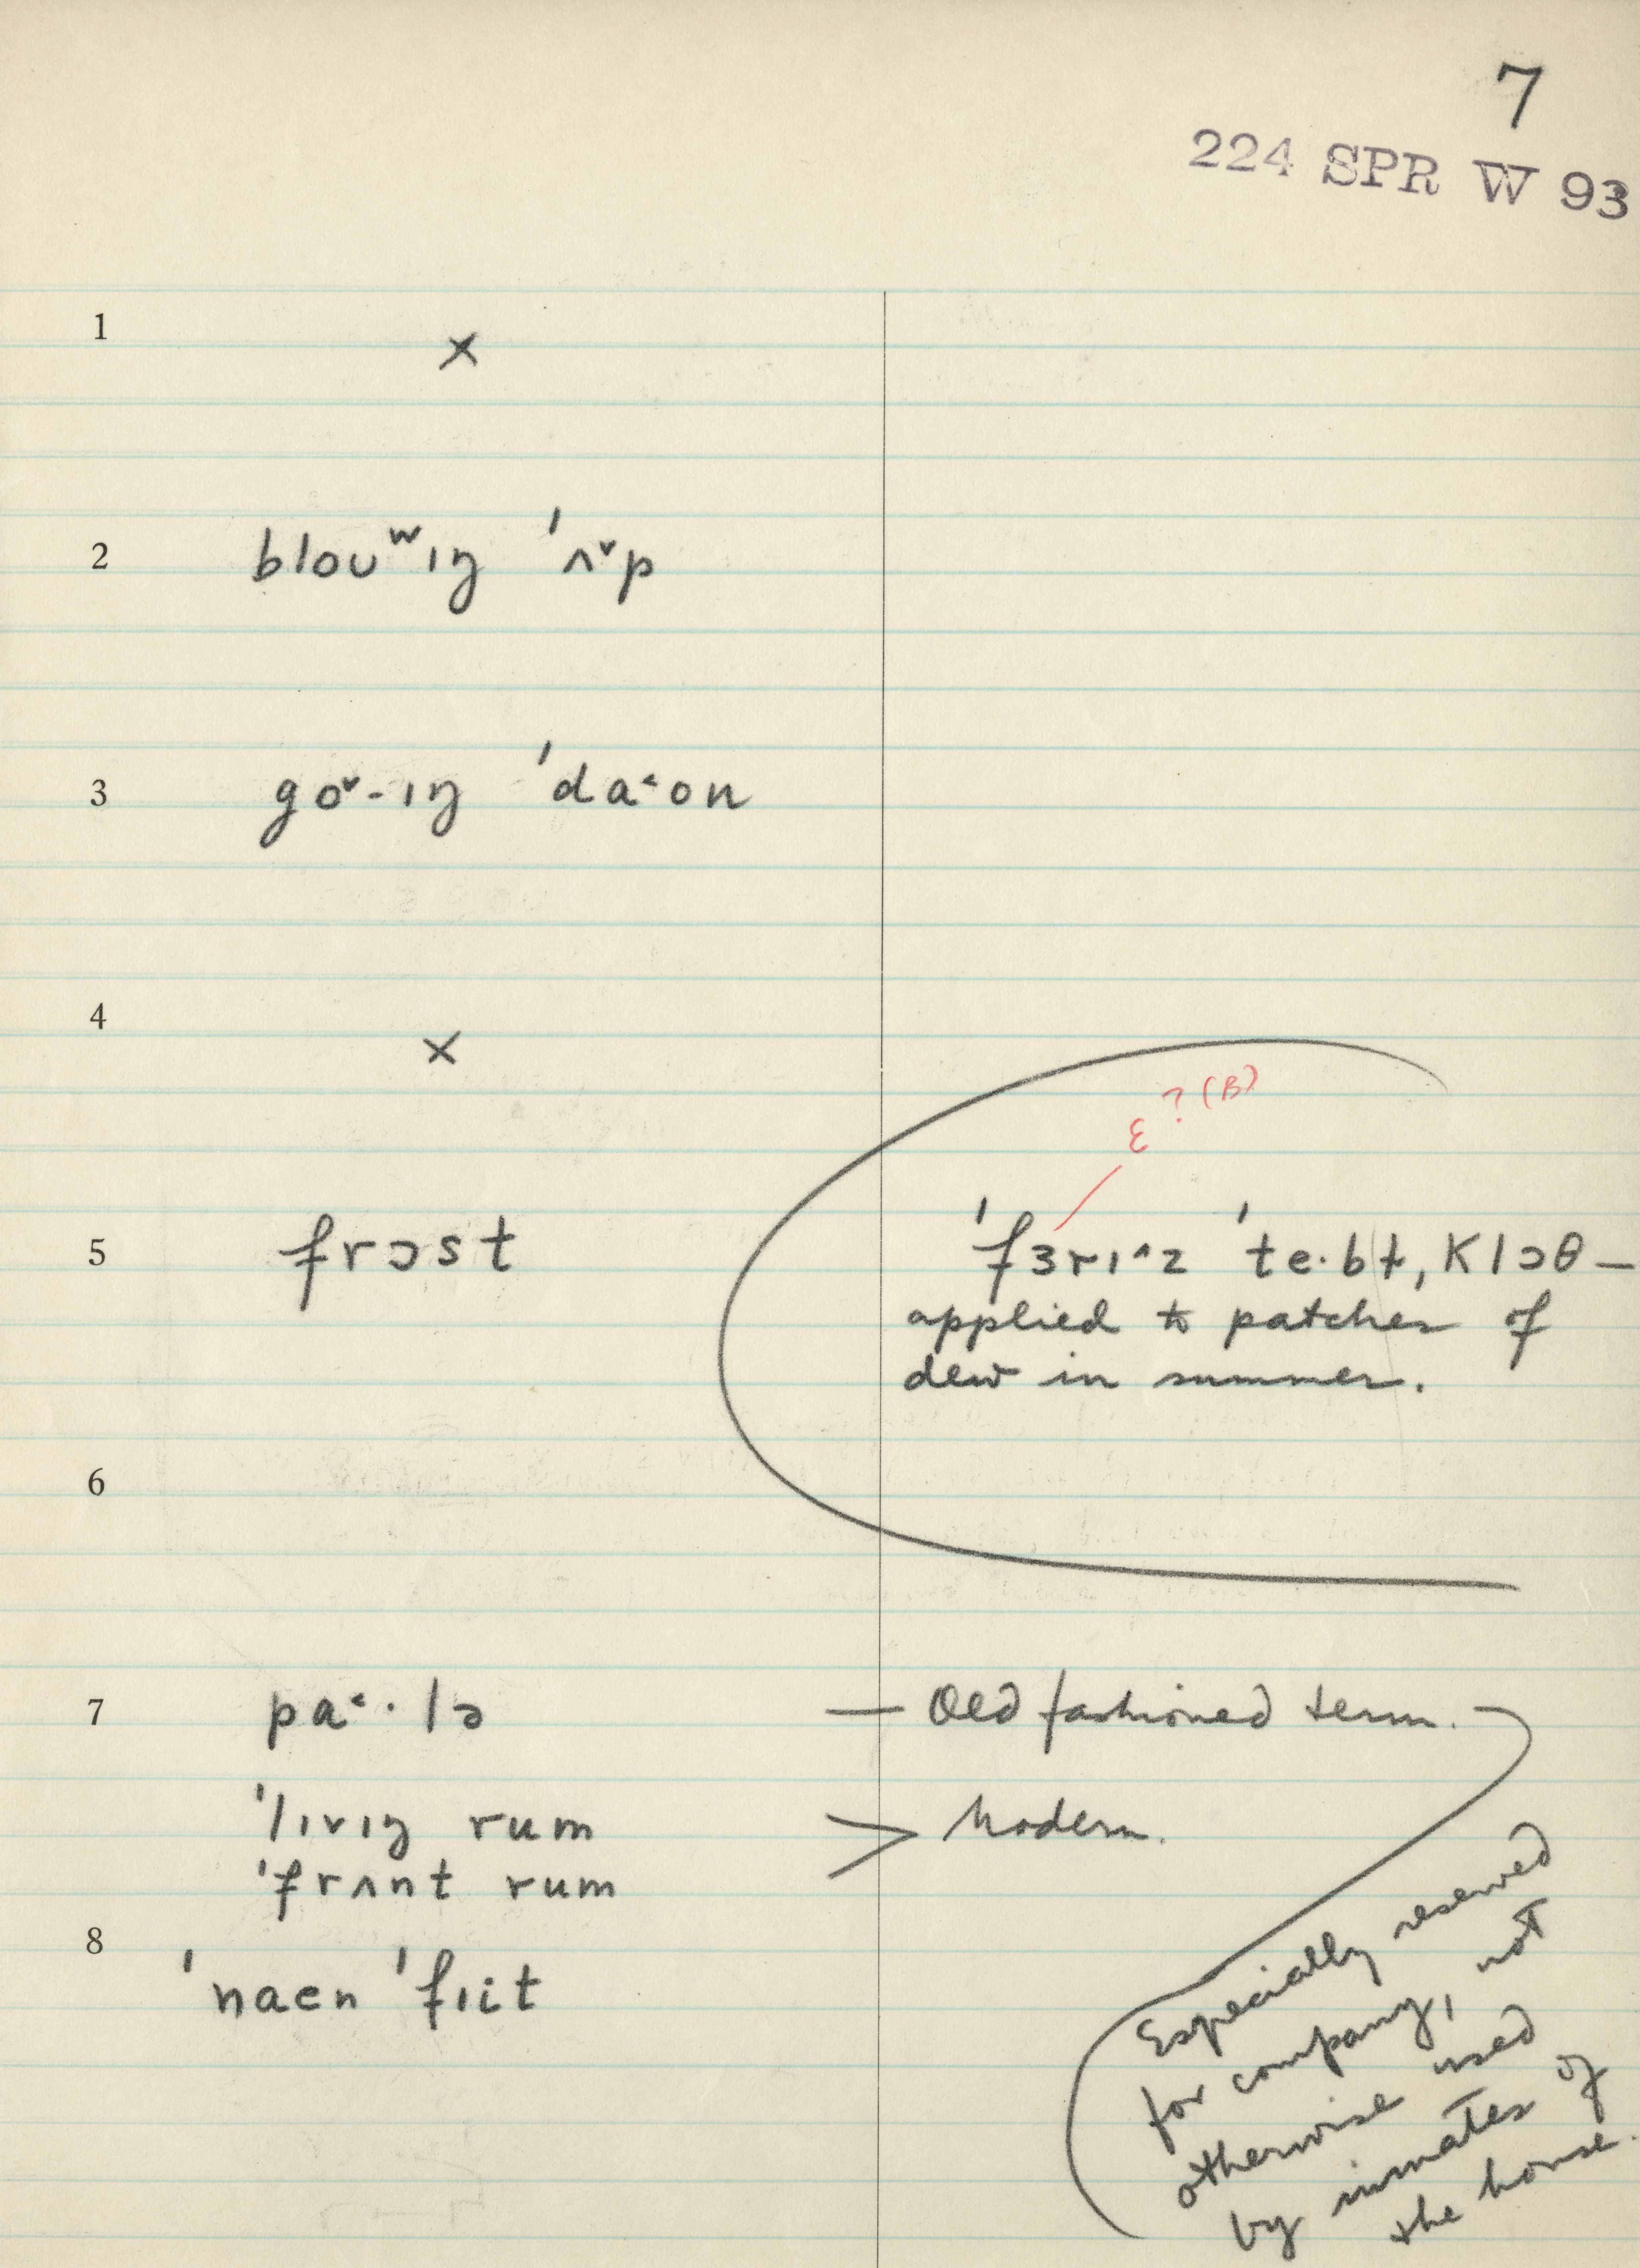 7
224 SPR W 93
1 ×
2 bloʊʷɪŋ ˈʌ˅p
3 go˅-ɪŋ ˈda˂on
4 ×
ɛ ? (B)
5 frɔst
ˈfɜrɪ˄z ˈte·bɫ, klɔθ —
applied to patches of
dew in summer.
6
7 pa˂·lə — Old fashioned term.
ˈlɪvɪŋ rum > Modern.
ˈfrʌnt rum
8 ˈnaɛn ˈfɪit
Especially reserved
for company, not
otherwise used
by inmates of
the house.